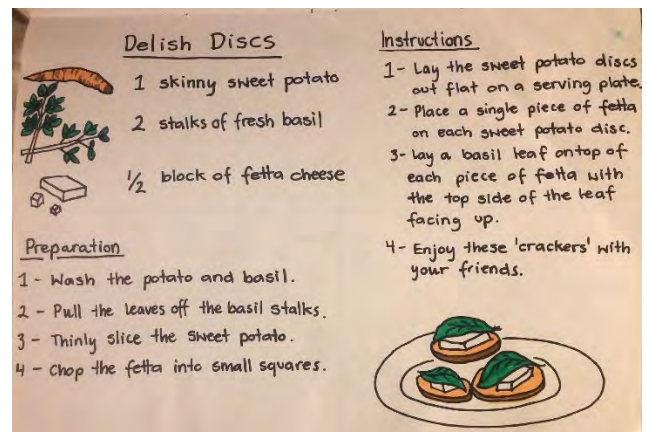 Delish Discs
1 skinny sweet potato
2 stalks of fresh basil
1/2 block of fetta cheese
Preparation
1 - Wash the potato and basil.
2 - Pull the leaves off the basil stalks.
3 - Thinly slice the sweet potato.
4 - Chop the fetta into small squares.
Instructions
1- Lay the sweet potato discs
out flat on a serving plate.
2- Place a single piece of fetta
on each sweet potato disc.
3- lay a basil leaf ontop of
each piece of fetta with
the top side of the leaf
facing up.
4- Enjoy these 'crackers' with
your friends.